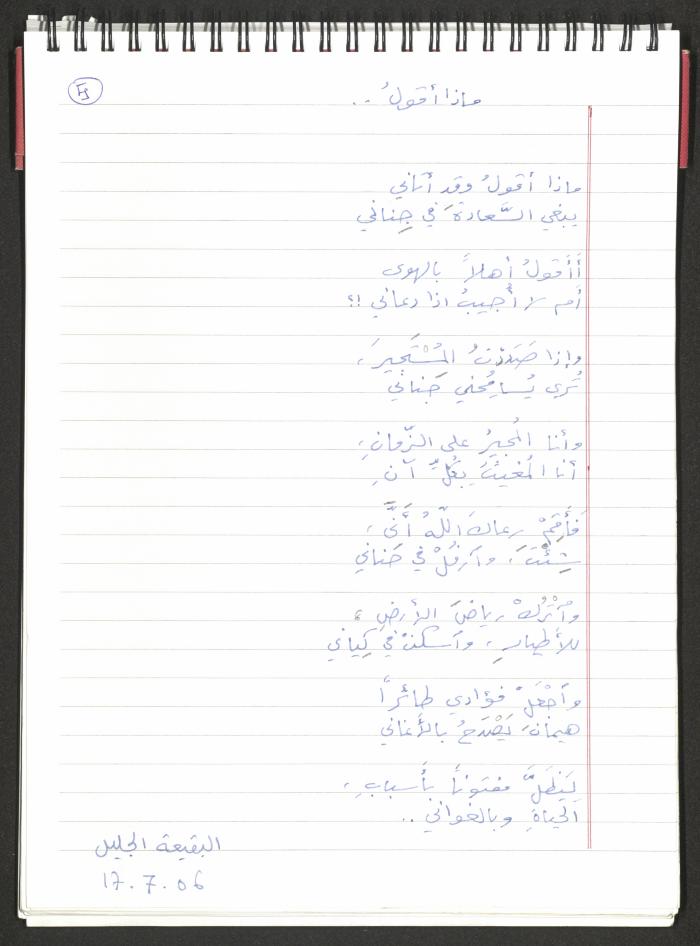 ماذا أقولُ ..
ماذا أقولُ وقد أتاني
يبغي السَّعادةَ في جِناني
أَأَقولُ أهلاً بالهوى
أم لا أُجيبُ اذا دعاني !؟
وإذا صَدَدْتُ المُسْتَجيرَ،
تُرى يُسامِحُني جَناني
وأنا المُجيرُ على الزّمانِ،
أنا المُغيثُ بِكُلِّ آنِ
فَأَقِمْ رعاكَ اللّهُ أَنَّى،
شِئْتَ، وآرفُلْ في حَناني
وآتْرُكْ رياضَ الأرضِ،
للأطيارِ، وآسكنْ في كِياني
وآجْعَلْ فؤادي طائرًا
هيمانَ يَصْدَحُ بالأغاني
لِيَظَلَّ مفتوناً بأسبابِ،
الحياةِ وبالغواني ..
البقيعة الجليل
17.7.06